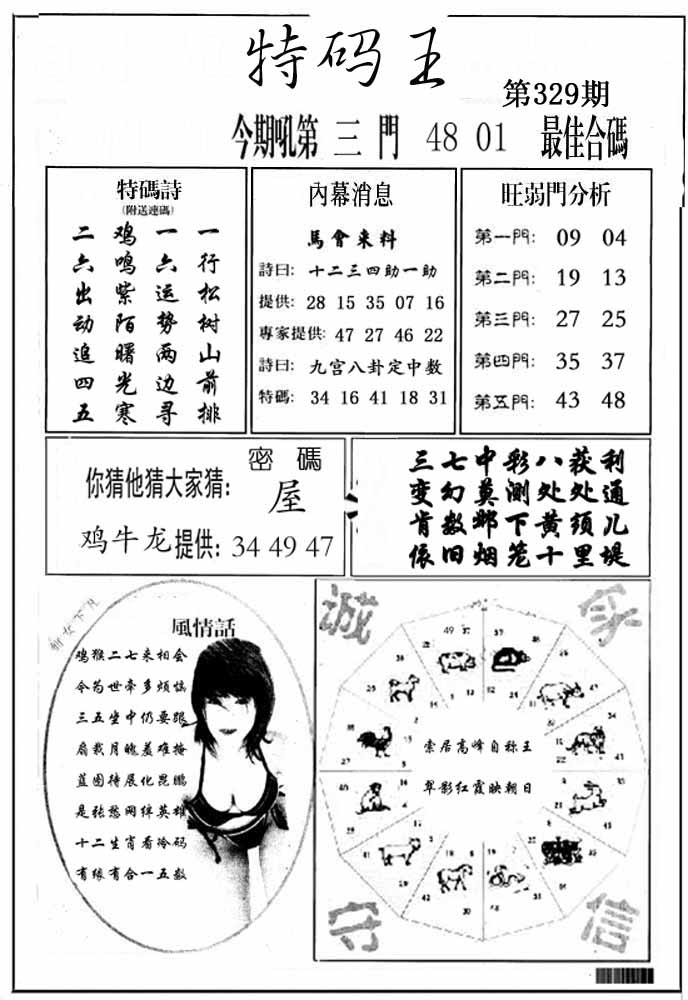 特码王
第329期
今期吼第 三門 48 01 最佳合碼
特碼詩
(附送連碼)
一行松树山前排
一六运势两边寻
鸡鸣紫陌曙光寒
二六出动追四五
內幕消息
馬會来料
詩曰: 十二三四助一助
提供: 28 15 35 07 16
專家提供: 47 27 46 22
詩曰: 九宫八卦定中数
特碼: 34 16 41 18 31
旺弱門分析
第一門: 09 04
第二門: 19 13
第三門: 27 25
第四門: 35 37
第五門: 43 48
密碼
你猜他猜大家猜: 屋
鸡牛龙提供: 34 49 47
三七中彩八获利
变幻莫测处处通
肯数邺下黄须儿
依旧烟笼十里堤
風情話
鸡猴二七来相会
令为世牵多烦恼
三五坐中仍要跟
扇裁月魄羞难掩
蓝图待展化昆鹏
是张愁网绊英雄
十二生肖看冷码
有缘有合一五数
诚
守
信
索居高峰自称王
翠影红霞映朝日